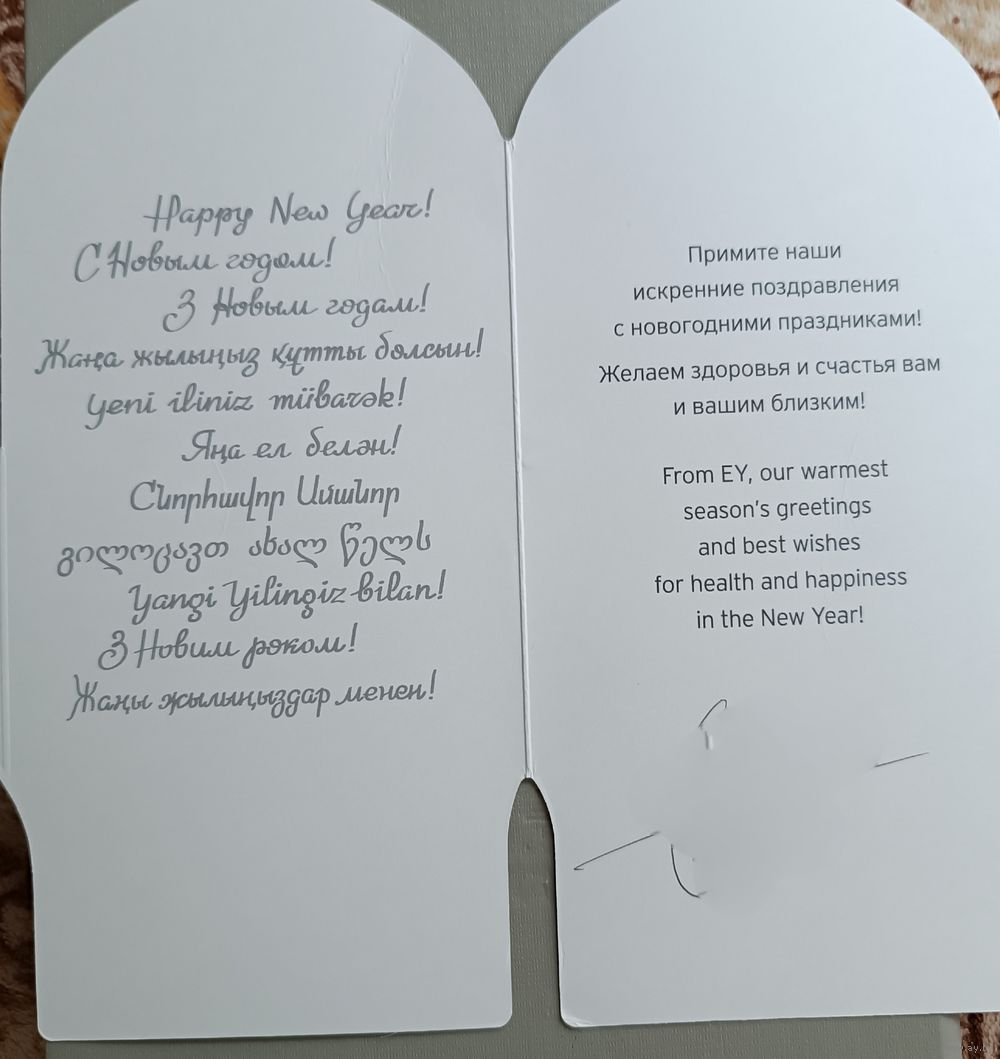 Happy New Year!
С Новым годом!
З Новым годам!
Жаңа жылыңыз құтты болсын!
Yeni iliniz mübarək!
Яңа ел белән!
Շնորհավոր Ամանոր
გილოცავთ ახალ წელს
Yangi Yilingiz bilan!
З Новим роком!
Жаңы жылыңыздар менен!
Примите наши
искренние поздравления
с новогодними праздниками!
Желаем здоровья и счастья вам
и вашим близким!
From EY, our warmest
season's greetings
and best wishes
for health and happiness
in the New Year!